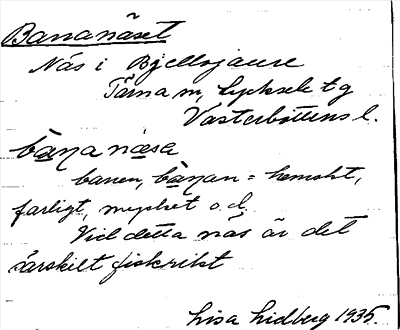 Bananäset
Näs i Bjellojaure
Tärna sn, Lycksele tg
Västerbottens l.
bana näsa
banen, banan = hemskt,
farligt, mycket o.d.
Vid detta näs är det
särskilt fiskrikt
Lisa Lidberg 1935.